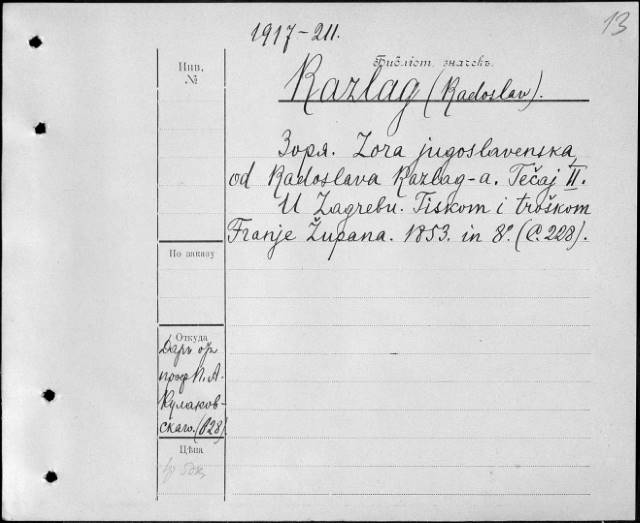 13
1917-211.
Инв.
№
Библіот. значекъ.
Razlag (Radoslav).
Зоря. Zora jugoslavenska,
od Radoslava Razlag-a. Tečaj II.
U Zagrebu. Tiskom i troškom
Franje Župana. 1853. in 8°. (С. 228).
По заказу
Откуда
Даръ отъ
проф. П. А.
Кулаков-
скаго. (828)
Цѣна